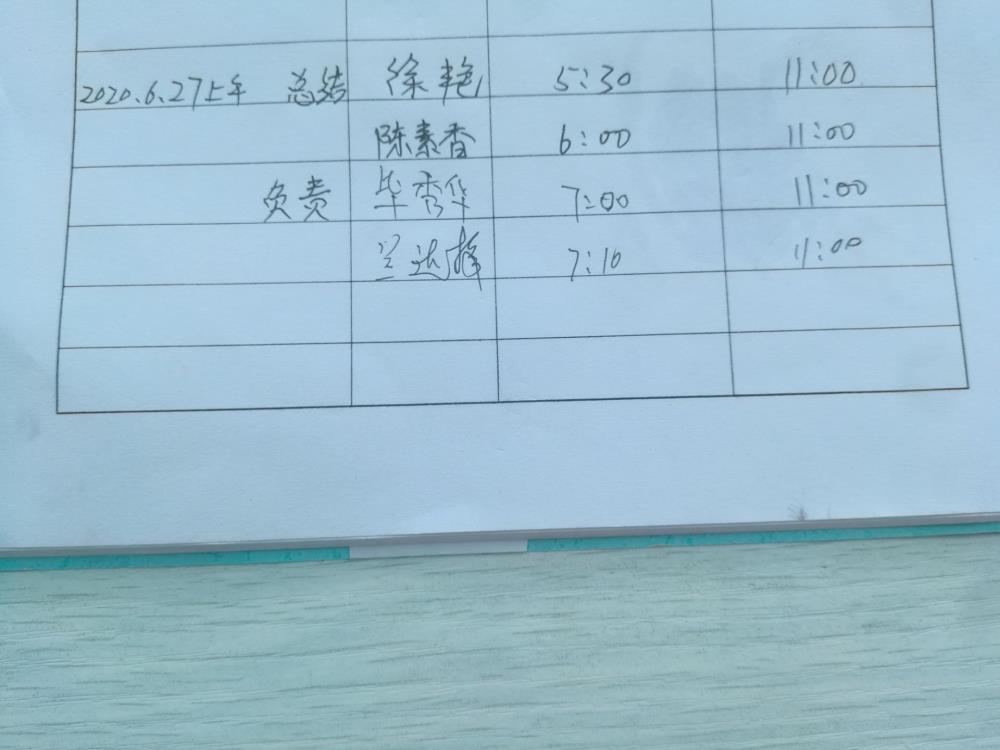 2020.6.27上午 总结 徐艳 5:30 11:00
陈素香 6:00 11:00
负责 毕秀华 7:00 11:00
兰 7:10 11:00